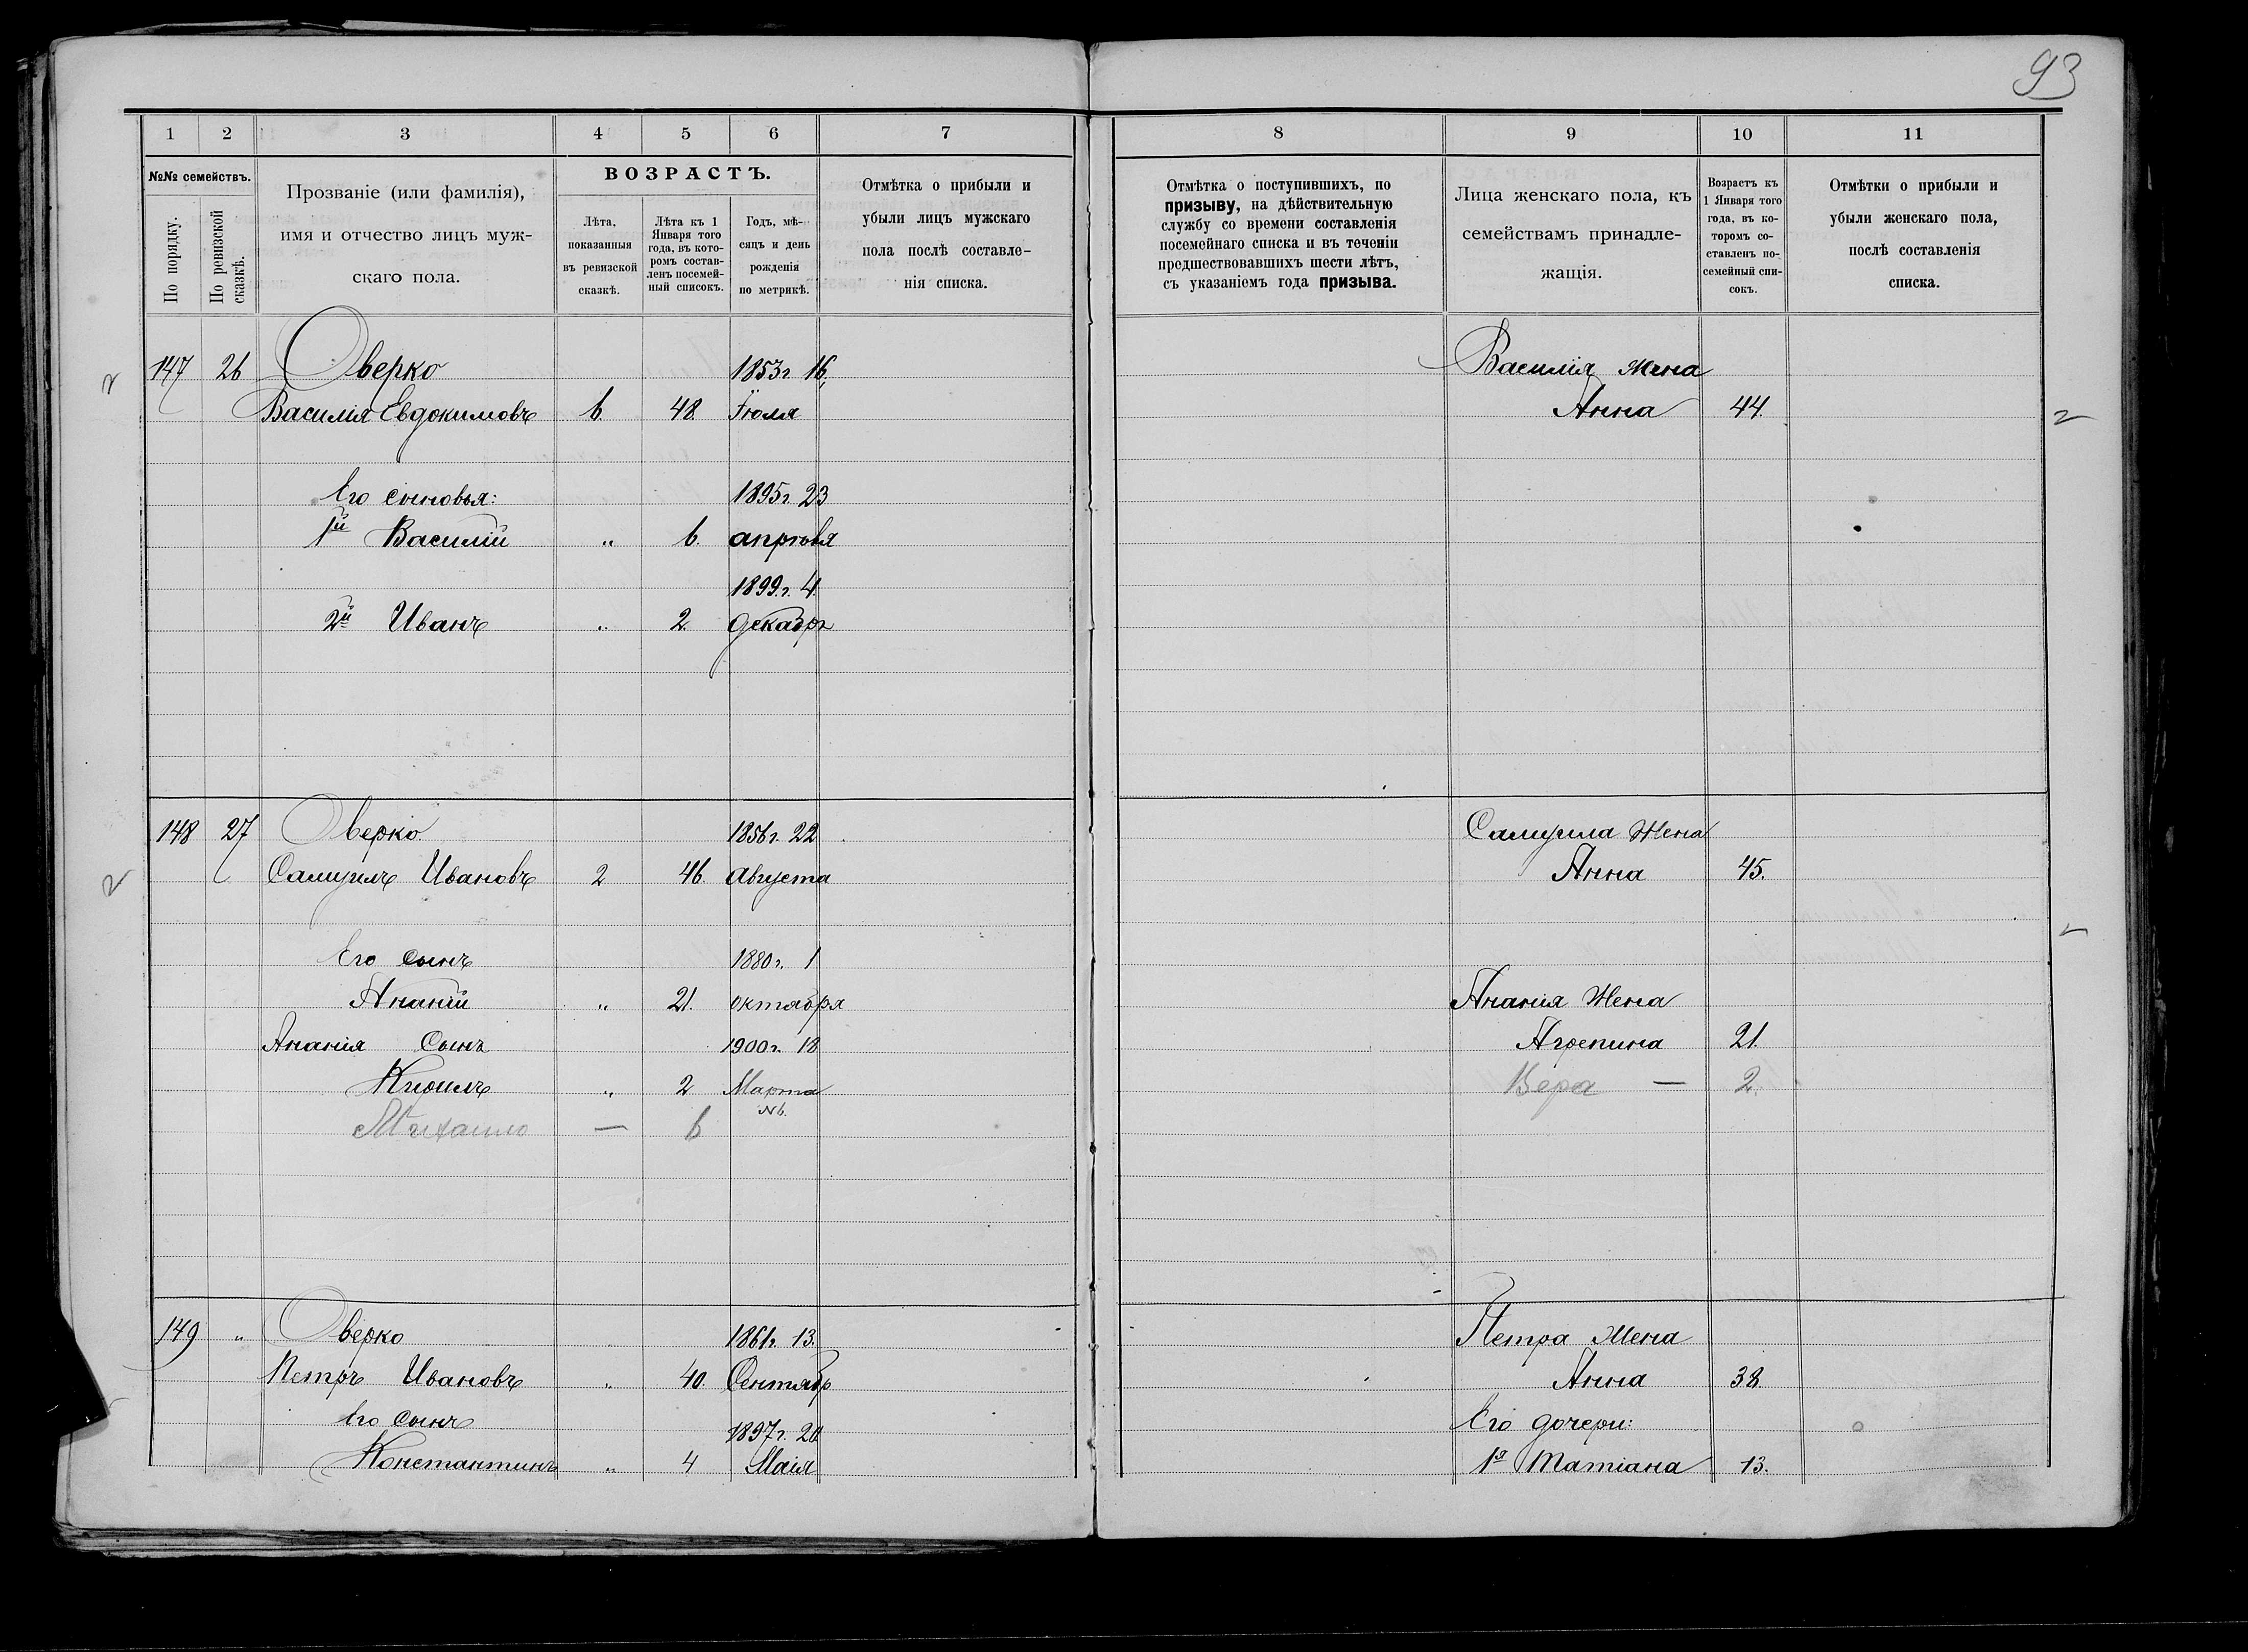 93
1 2 3 4 5 6 7
№№ семействъ.
По порядку.
По ревизской сказкѣ.
Прозваніе (или фамилія),
имя и отчество лицъ муж-
скаго пола.
ВОЗРАСТЪ.
Лѣта,
показанныя
въ ревизской
сказкѣ.
Лѣта къ 1
Января того
года, въ кото-
ромъ состав-
ленъ посемей-
ный списокъ.
Годъ, мѣ-
сяцъ и день
рожденія
по метрикѣ.
Отмѣтка о прибыли и
убыли лицъ мужскаго
пола послѣ составле-
нія списка.
147 26 Оверко 1853г. 16,
Василія Евдокимовъ 6. 48. Іюля
Его сыновья: 1895г. 23
1й Василій „ 6. апрѣля
1899г. 4
2й Иванъ „ 2. декабр
148 27 Оверко 1856г. 22
Самуилъ Ивановъ 2 46. августа
Его сынъ 1880г. 1
Ананій „ 21. октября
Ананія Сынъ 1900г. 18
Кирилъ „ 2 Марта
Михаило — 6
149 „ Оверко 1861г. 13.
Петръ Ивановъ „ 40. Сентябр
Его сынъ 1897г. 20
Константинъ „ 4 Маія
8 9 10 11
Отмѣтка о поступившихъ, по
призыву, на дѣйствительную
службу со времени составленія
посемейнаго списка и въ теченіи
предшествовавшихъ шести лѣтъ,
съ указаніемъ года призыва.
Лица женскаго пола, къ
семействамъ принадле-
жащія.
Возрастъ къ
1 Января того
года, въ ко-
торомъ со-
ставленъ по-
семейный спи-
сокъ.
Отмѣтки о прибыли и
убыли женскаго пола,
послѣ составленія
списка.
Василія Жена
Анна 44.
Самуила Жена
Анна 45.
Ананія Жена
Агрепина 21.
Вера — 2.
Петра Жена
Анна 38
Его дочери:
1я Татіана 13.